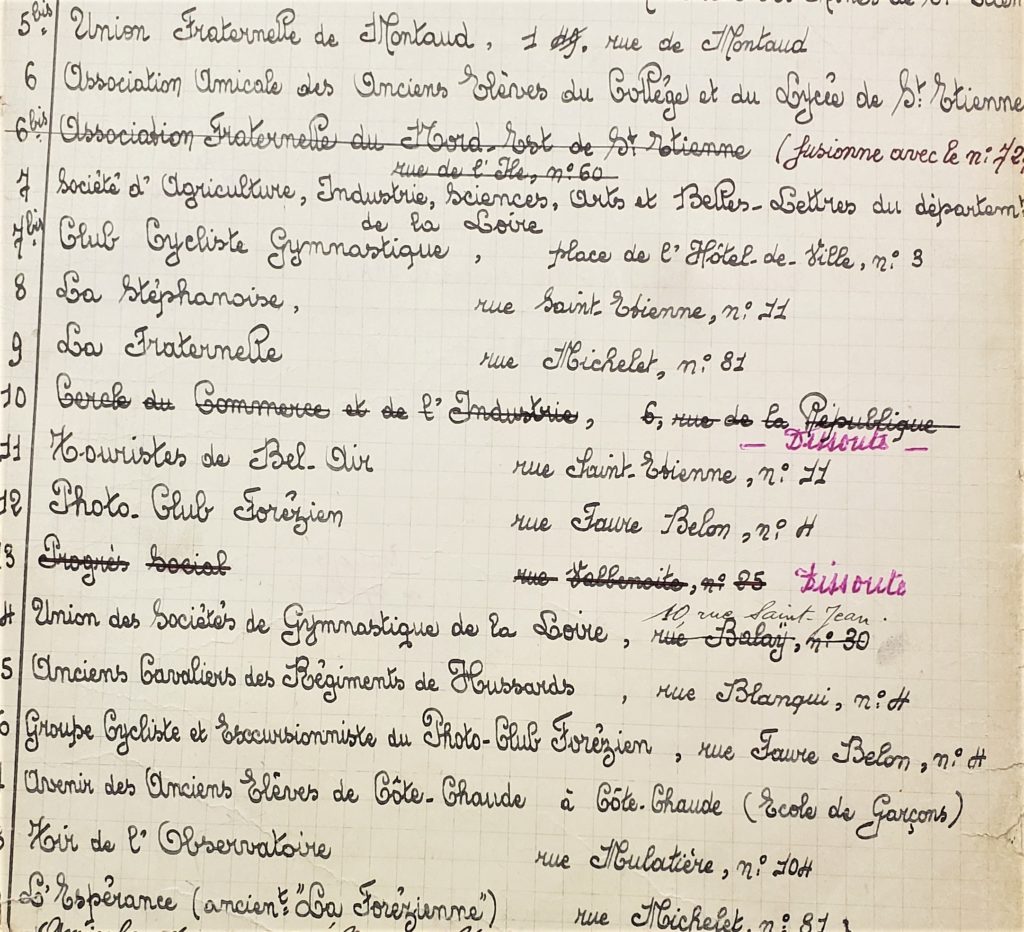 5bis. Union Fraternelle de Montaud, 1 rue de Montaud
6 Association Amicale des Anciens Elèves du Collége et du Lycée de St Etienne
6bis. Association Fraternelle du Nord-Est de St Etienne (fusionne avec le n° 72
rue de l'Ile, n° 60
7 Société d'Agriculture, Industrie, Sciences, Arts et Belles-Lettres du départemt
de la Loire
7bis Club Cycliste Gymnastique, place de l'Hôtel-de-Ville, n° 3
8 La Stéphanoise, rue Saint-Etienne, n° 11
9 La Fraternelle rue Michelet, n° 81
10 Cercle du Commerce et de l'Industrie, 6, rue de la République
— Dissoute —
11 Touristes de Bel-Air rue Saint-Etienne, n° 11
12 Photo-Club Forézien rue Faure Belon, n° 4
3 Progrès Social rue Valbenoite, n° 25 Dissoute
10, rue Saint-Jean.
4 Union des Sociétés de Gymnastique de la Loire, rue Balaÿ, n° 30
5 Anciens Cavaliers des Régiments de Hussards, rue Blanqui, n° 4
6 Groupe Cycliste et Excursionniste du Photo-Club Forézien, rue Faure Belon, n° 4
Avenir des Anciens Elèves de Côte-Chaude à Côte-Chaude (Ecole de Garçons)
Tir de l'Observatoire rue Mulatière, n° 104
L'Espérance (ancient. "La Forézienne") rue Michelet, n° 81